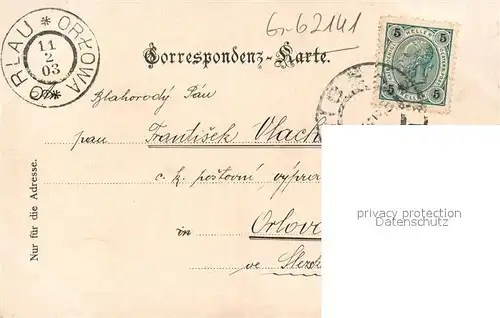 Gr62141
ORLAU * ORŁOWA *
11
2
03
Correspondenz-Karte.
5 HELLER 5
5 5
Blahorodý Pán
pan František Vlach
c. k. poštovní výprav
in Orlov
ve Slezs
Nur für die Adresse.
privacy protection
Datenschutz